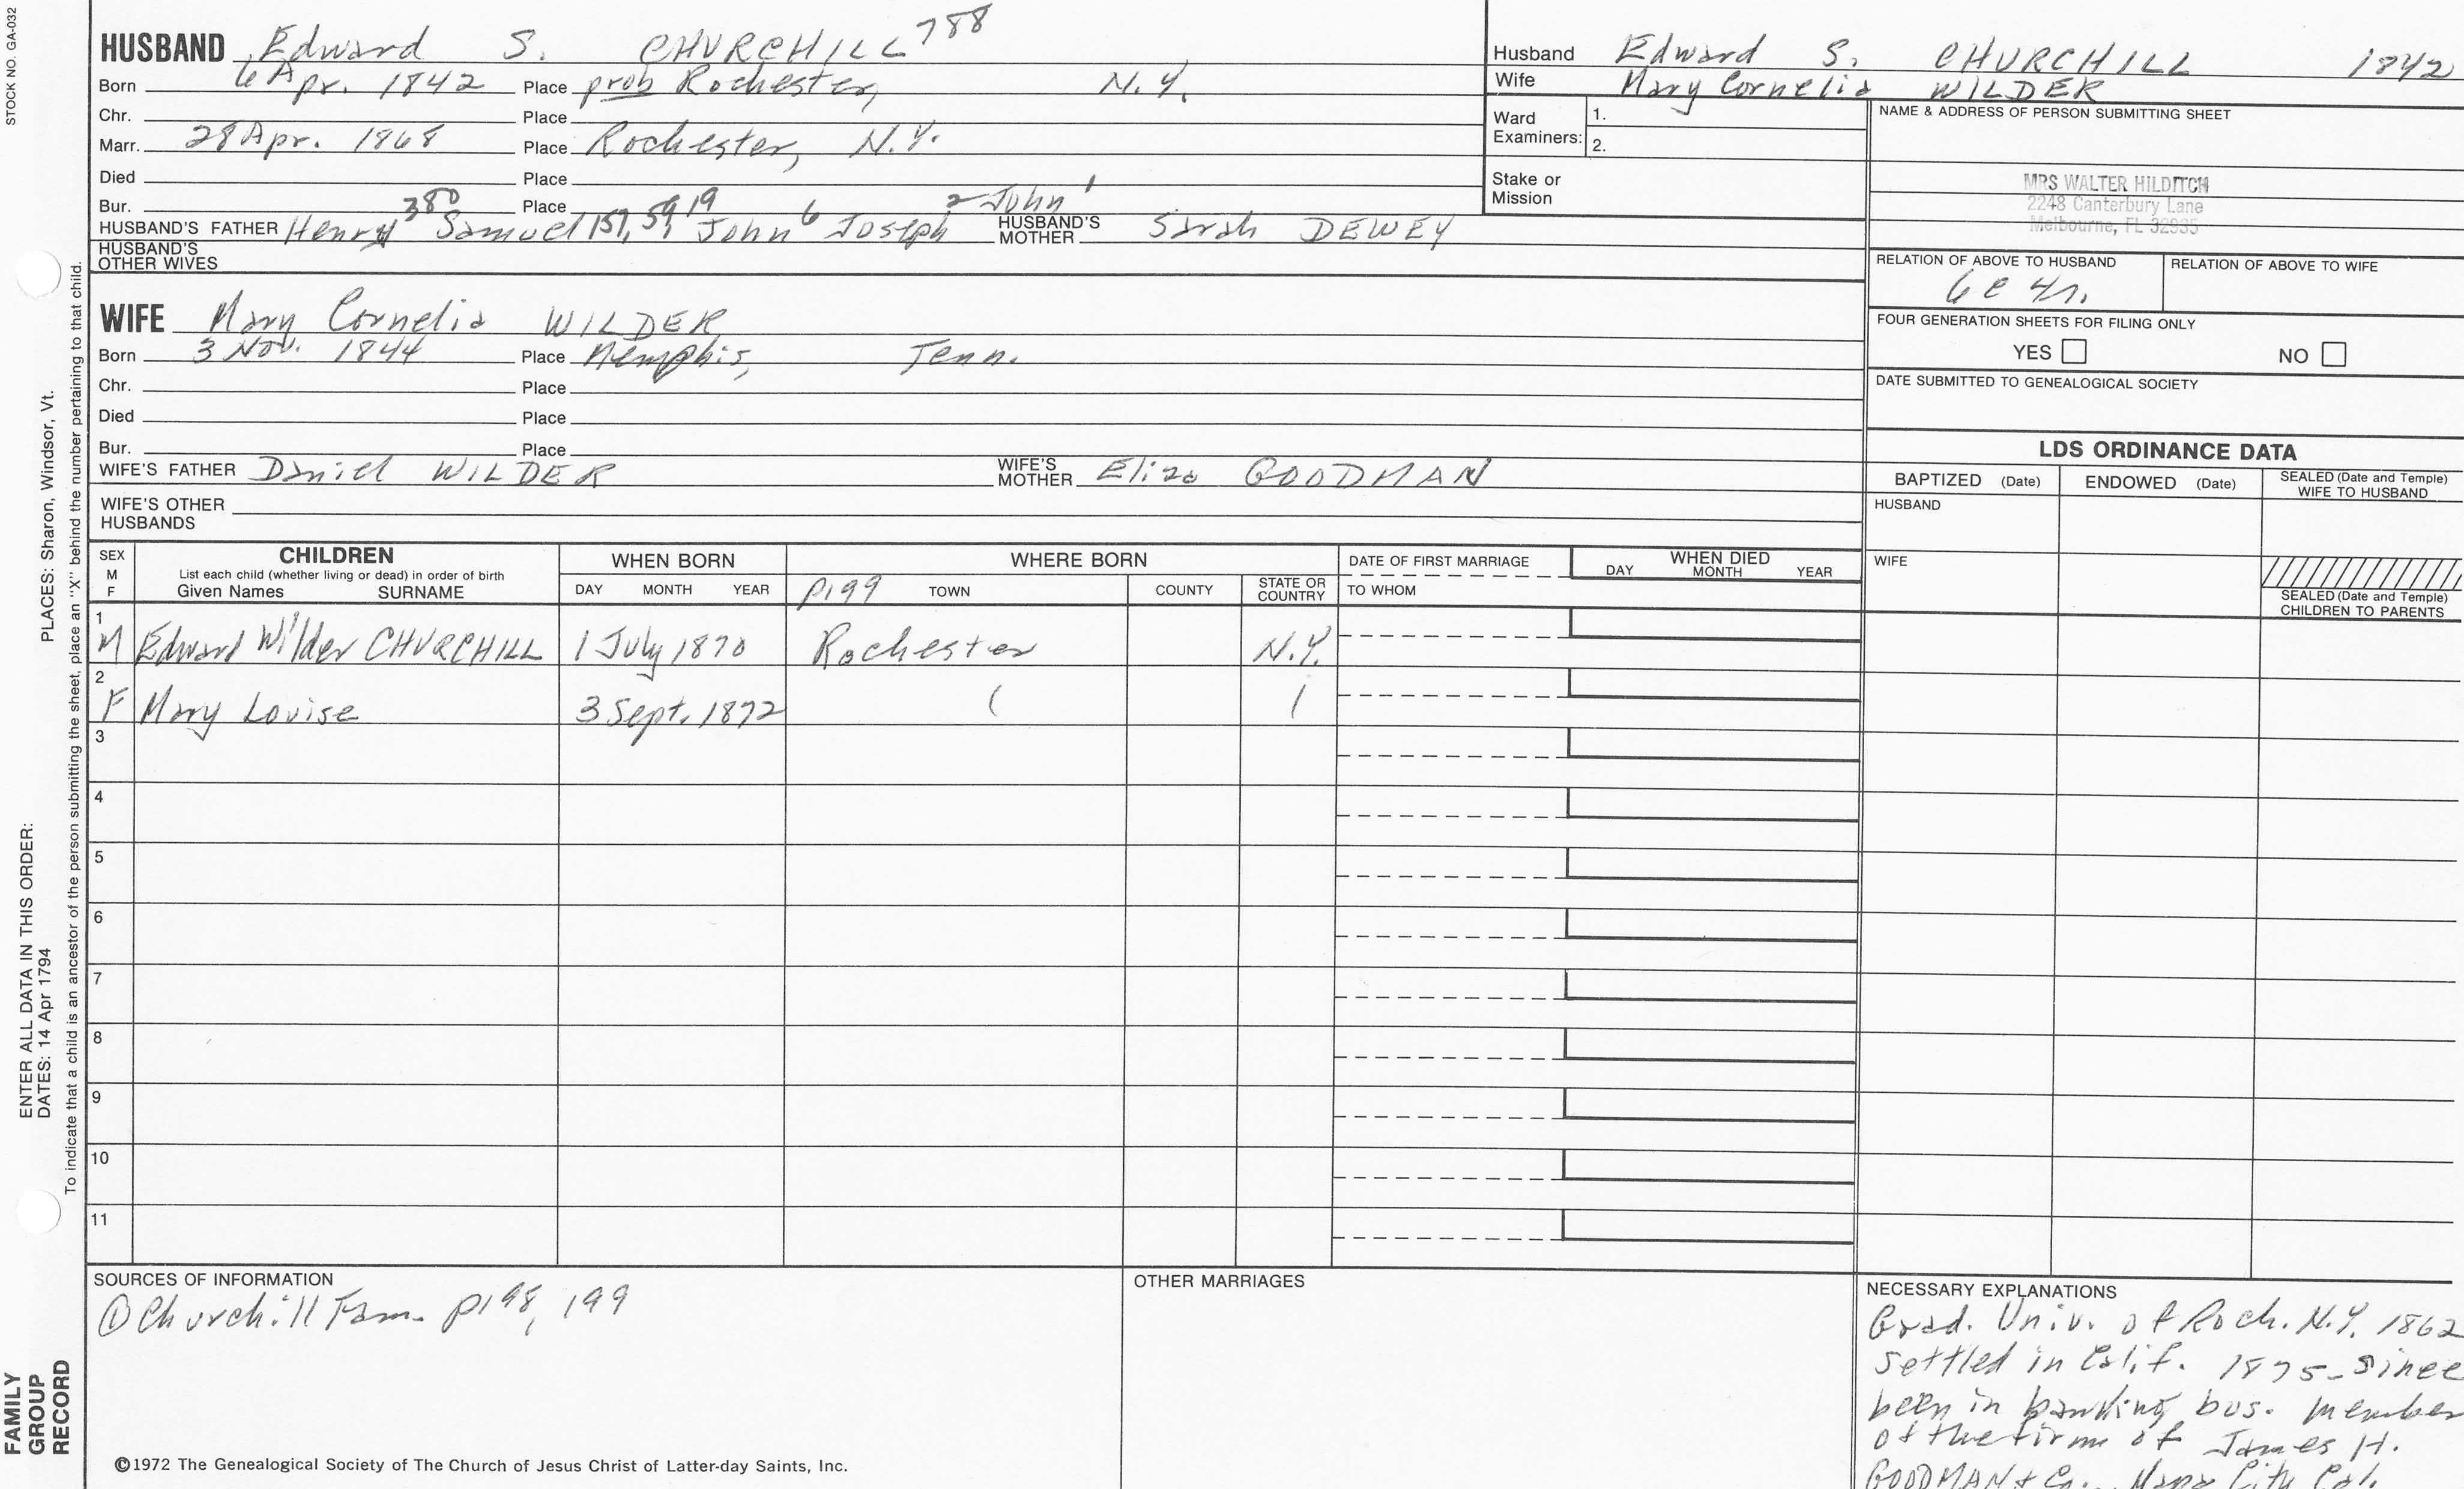 STOCK NO. GA-032
HUSBAND Edward S. CHURCHILL 788
Born 6 Apr. 1842 Place prob Rochester, N.Y.
Chr. Place
Marr. 28 Apr. 1868 Place Rochester, N.Y.
Died Place
Bur. Place
HUSBAND'S FATHER Henry 380 Samuel 157, 59 19 John 6 Joseph 2 John 1 HUSBAND'S MOTHER Sarah DEWEY
HUSBAND'S OTHER WIVES
WIFE Mary Cornelia WILDER
Born 3 Nov. 1844 Place Memphis, Tenn.
Chr. Place
Died Place
Bur. Place
WIFE'S FATHER Daniel WILDER WIFE'S MOTHER Eliza GOODMAN
WIFE'S OTHER HUSBANDS
Husband Edward S. CHURCHILL 1842
Wife Mary Cornelia WILDER
Ward Examiners: 1.
2.
Stake or Mission
NAME & ADDRESS OF PERSON SUBMITTING SHEET
MRS WALTER HILDITCH
2248 Canterbury Lane
Melbourne, FL 32935
RELATION OF ABOVE TO HUSBAND RELATION OF ABOVE TO WIFE
6c 4r.
FOUR GENERATION SHEETS FOR FILING ONLY
YES NO
DATE SUBMITTED TO GENEALOGICAL SOCIETY
LDS ORDINANCE DATA
BAPTIZED (Date) ENDOWED (Date) SEALED (Date and Temple) WIFE TO HUSBAND
HUSBAND
WIFE
SEALED (Date and Temple) CHILDREN TO PARENTS
SEX M F
CHILDREN
List each child (whether living or dead) in order of birth
Given Names SURNAME
WHEN BORN
DAY MONTH YEAR
WHERE BORN
p199 TOWN COUNTY STATE OR COUNTRY
DATE OF FIRST MARRIAGE
TO WHOM
WHEN DIED
DAY MONTH YEAR
1 M Edward Wilder CHURCHILL 1 July 1870 Rochester N.Y.
2 F Mary Louise 3 Sept. 1872 ( (
3
4
5
6
7
8
9
10
11
SOURCES OF INFORMATION
① Churchill Fam. p198, 199
OTHER MARRIAGES
NECESSARY EXPLANATIONS
Grad. Univ. of Roch. N.Y. 1862
settled in Calif. 1875 - since
been in banking bus. member
of the firm of James H.
GOODMAN & Co. Napa City Cal.
©1972 The Genealogical Society of The Church of Jesus Christ of Latter-day Saints, Inc.
FAMILY GROUP RECORD
ENTER ALL DATA IN THIS ORDER:
DATES: 14 Apr 1794 PLACES: Sharon, Windsor, Vt.
To indicate that a child is an ancestor of the person submitting the sheet, place an "X" behind the number pertaining to that child.